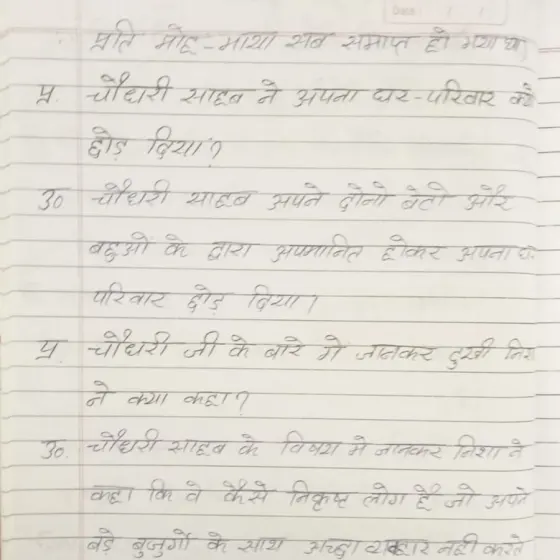 प्रति मोह-माया सब समाप्त हो गया था
प्र. चौधरी साहब ने अपना घर-परिवार क्यो
छोड़ दिया?
उ० चौधरी साहब अपने दोनो बेटो और
बहुओं के द्वारा अपमानित होकर अपना घ
परिवार छोड़ दिया।
प्र. चौधरी जी के बारे मे जानकर दुखी निश
ने क्या कहा?
उ०. चौधरी साहब के विषय मे जानकर निशा ने
कहा कि वे कैसे निकृष्ट लोग हैं जो अपने
बड़े बुजुर्गो के साथ अच्छा व्यवहार नही करते